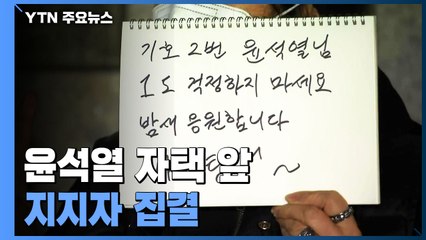 YTN 주요뉴스
기호 2번 윤석열님
1도 걱정하지 마세요
밤새 응원합니다
윤석열 자택 앞
지지자 집결